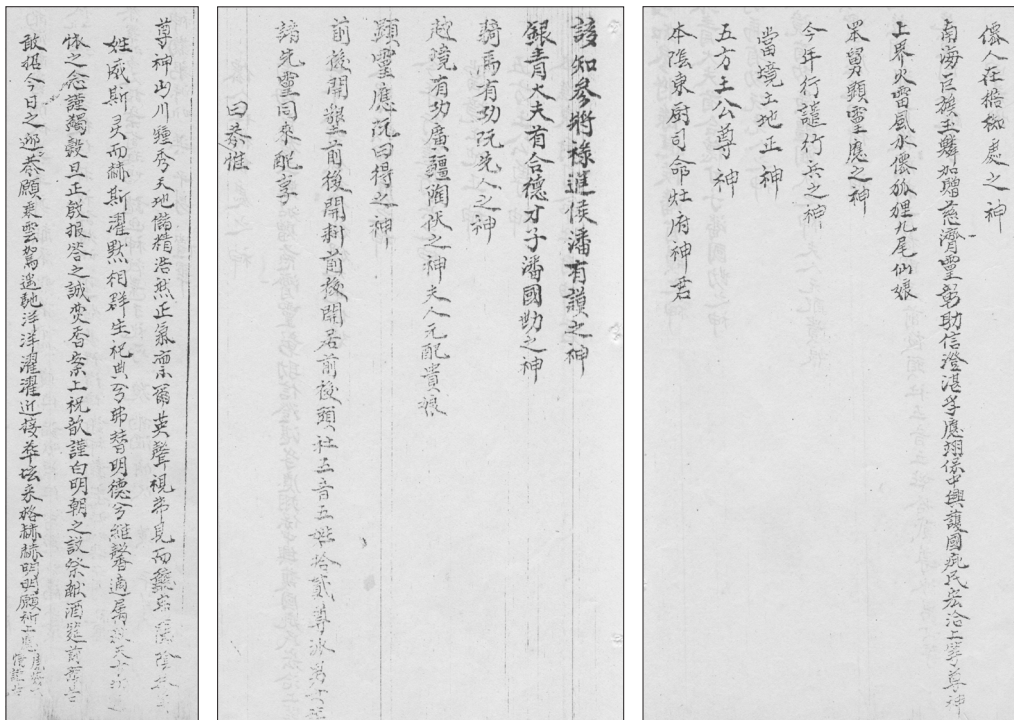 人在梧楸處之神
南海巨族玉鱗加贈慈濟靈彰助信澄湛孚應翊保中興護國庇民宏洽上等尊神
上界火雷風水狐狸九尾仙娘
眾舅顕靈應之神
今年行譴行兵之神
當境土地正神
五方土公尊神
本陰東厨司命灶府神君
該知參將祿進侯潘有讃之神
銀青大夫有合德才子潘國勘之神
騎馬有功阮先人之神
越境有功廣疆閫伏之神夫人元配貴娘
顕靈應阮曰得之神
前後開墾前後開耕前後開居前後頭社五音五世拾貳尊派
諸先靈同來配享
曰恭惟
尊神山川鍾秀天地儲精浩然正氣凜爾英聲視弗見而聽
姓威斯灵而赫斯濯黙相群生祀典兮弗替明德兮維馨適屬
依之念謹蠲榖旦正啟报答之誠焚香案上祝歆謹白明朝之設祭献酒筵前
敢祝今日之迎恭願乘雲駕遥馳洋洋濯濯近接華坛来格赫赫明明願祈上